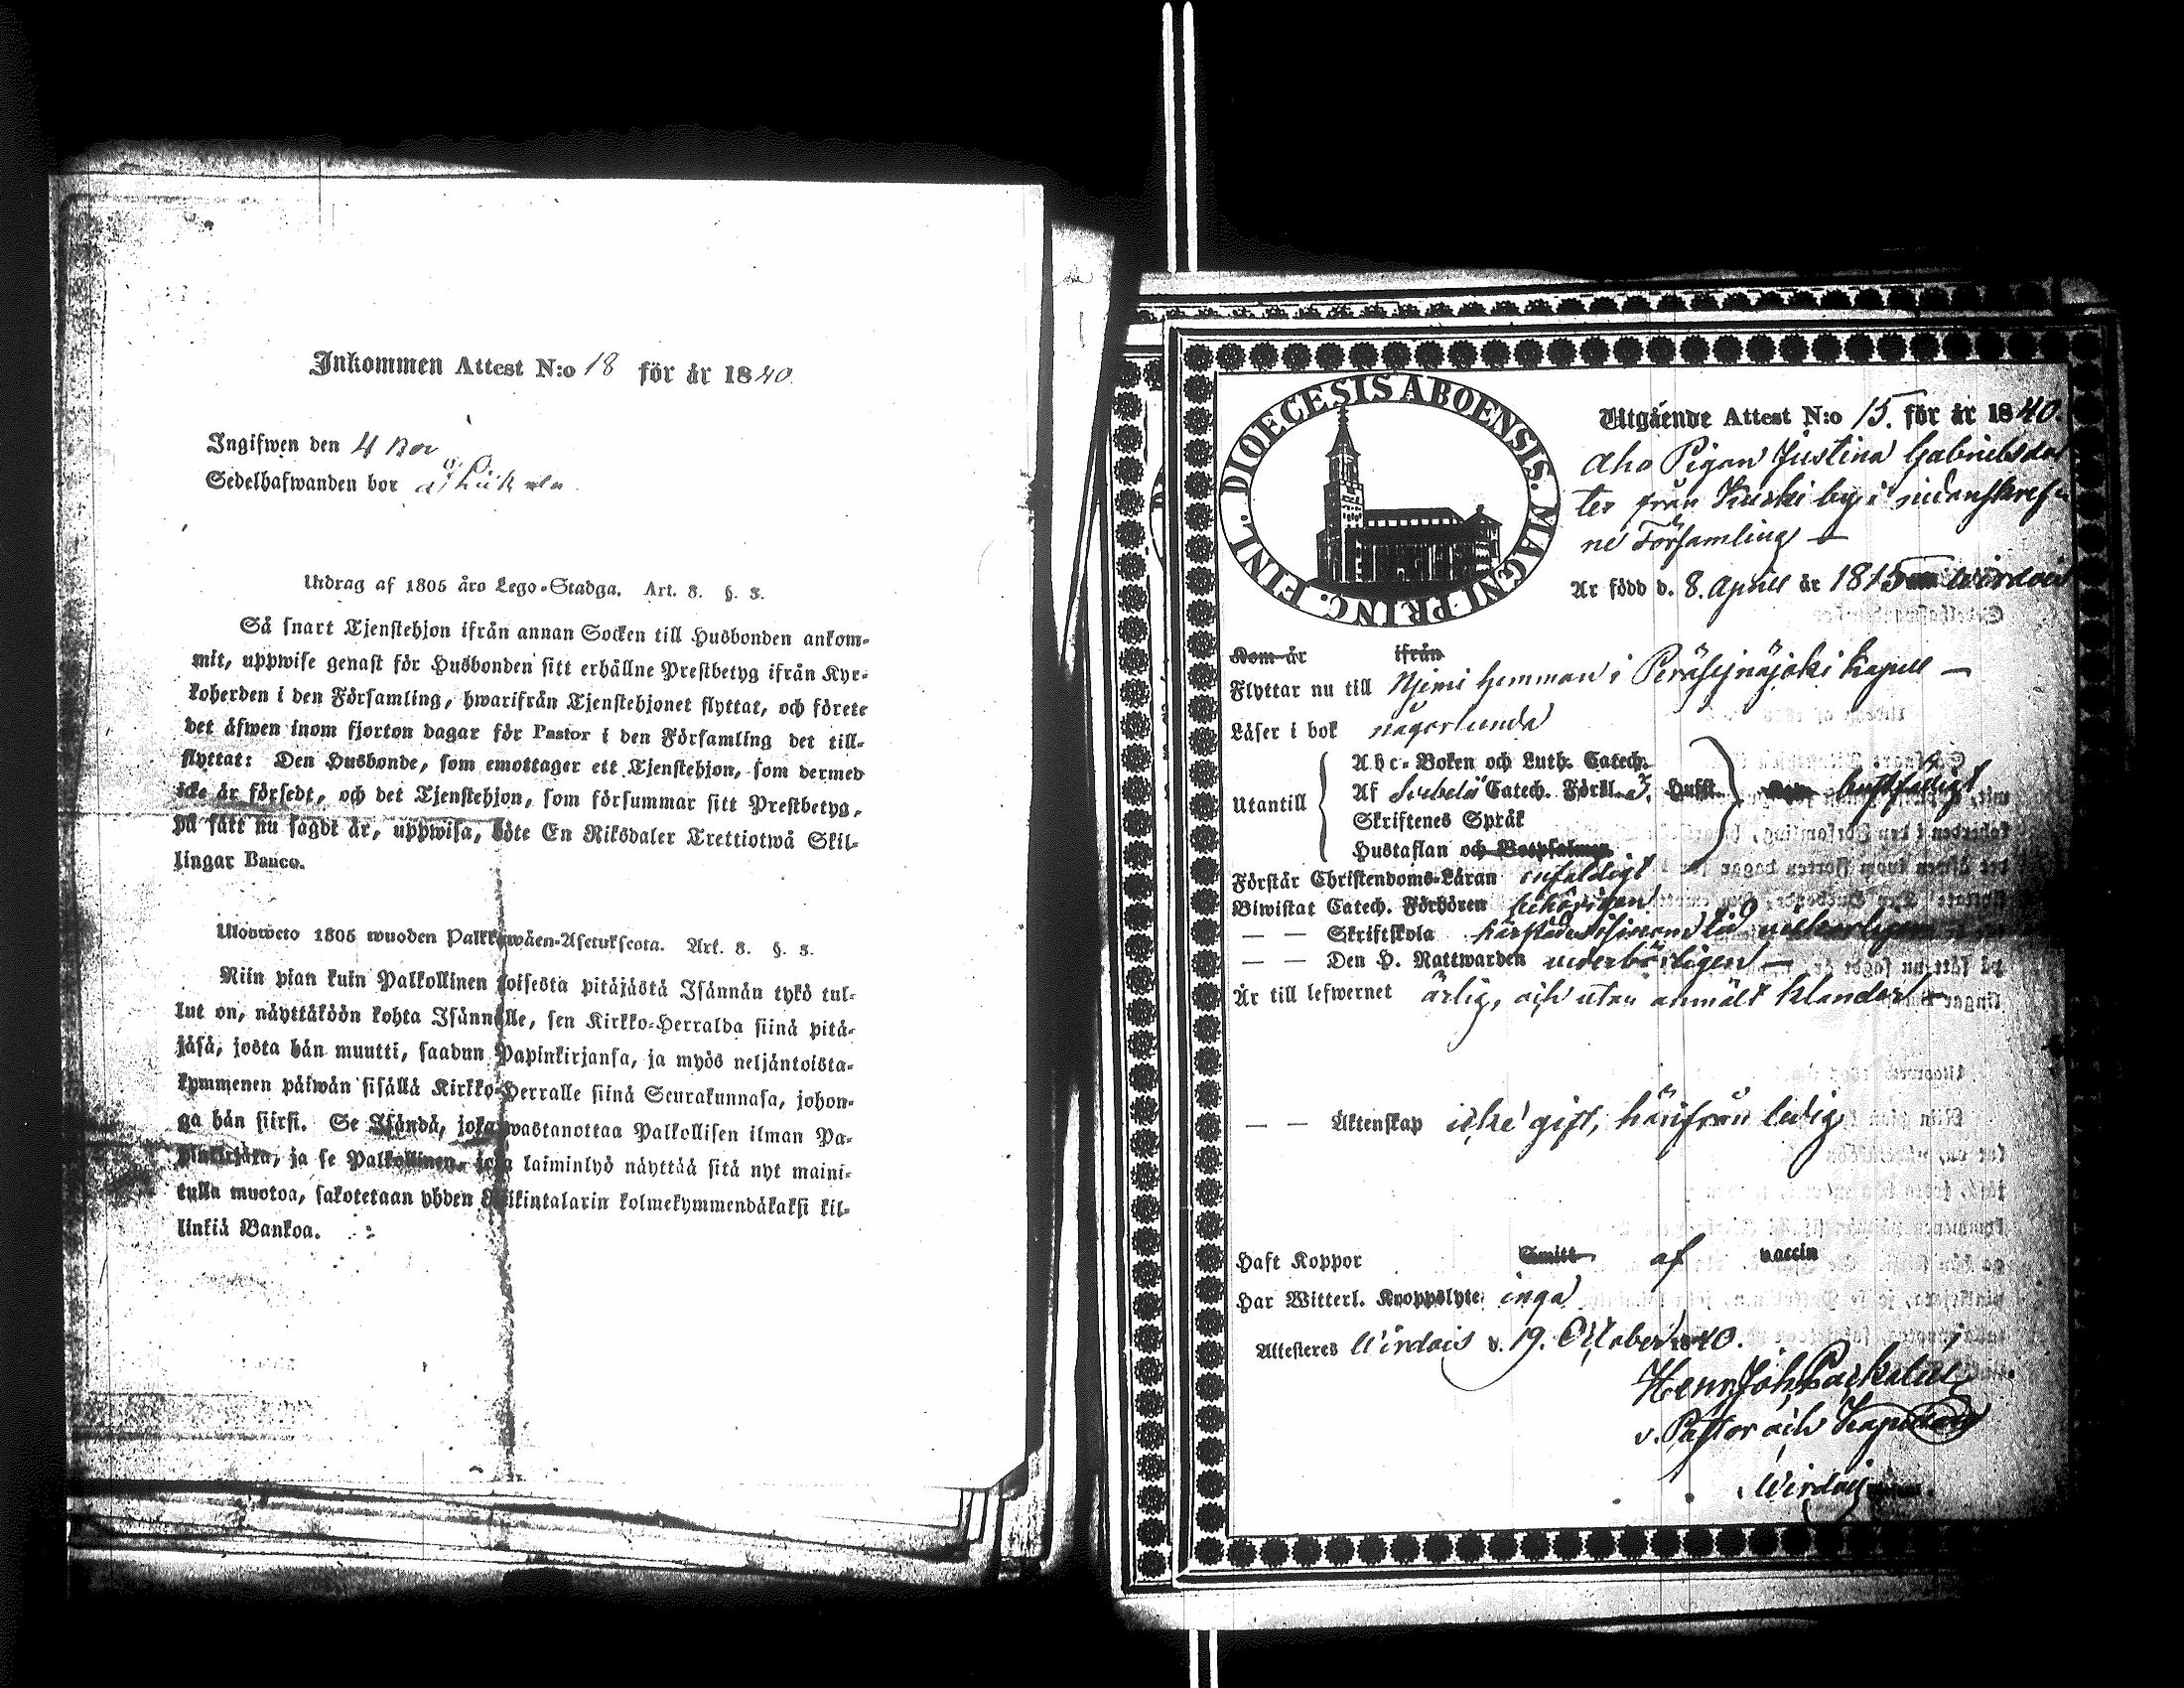 Inkommen Attest N:o 18 för år 1840
Ingifwen den 4 Nov
Sedelhafwanden bor å
Utdrag af 1805 års Lego-Stadga. Art. 8. §. 3.
Så snart Tjenstehjon ifrån annan Socken till Husbonden ankom-
mit, uppwise genast för Husbonden sitt erhållne Prestbetyg ifrån Kyr-
koherden i den Församling, hwarifrån Tjenstehjonet flyttat, och förete
det äfwen inom fjorton dagar för Pastor i den Församling det till-
flyttat: Den Husbonde, som emottager ett Tjenstehjon, som dermed
icke är försedt, och det Tjenstehjon, som försummar sitt Prestbetyg,
på sätt nu sagdt är, uppwisa, böte En Riksdaler Trettiotwå Skil-
lingar Banco.
Ulosweto 1805 wuoden Palkkawäen-Asetuksesta. Art. 8. §. 3.
Niin pian kuin Palkollinen toisesta pitäjästä Isännän tykö tul-
lut on, näyttäköön kohta Isännälle, sen Kirkko-Herralda siinä pitä-
jäsä, josta hän muutti, saadun Papinkirjansa, ja myös neljäntoista-
kymmenen päiwän sisällä Kirkko-Herralle siinä Seurakunnasa, johon-
ga hän siirsi. Se Isändä, joka wastanottaa Palkollisen ilman Pa-
pinkirjata, ja se Palkollinen, joka laiminlyö näyttää sitä nyt maini-
tulla muotoa, sakotetaan yhden Riikintalarin kolmekymmendäkaksi kil-
linkiä Bankoa.
DIOECESIS ABOENSIS. MAGNI PRINC. FINL.
Utgående Attest N:o 15. för år 1840.
Pigan Justina Gabrielsdot
ter från Kurki by i nidanskref-
ne Församling —
Är född d. 8. April år 18 Wirdois
Kom år ifrån
Flyttar nu till Njemi hemman i Peräsejnäjoki Kapell —
Läser i bok någorlunda
Utantill
Abc-Boken och Luth. Catech.
Af Svebelii Catech. Förkl. 3. Husst.
Skriftenes Språk
Hustaflan och Botpsalmen
Förstår Christendoms-Läran enfaldigt
Biwistat Catech. Förhören behörigen
— — Skriftskola
— — Den H. Nattwarden wederbörligen —
Är till lefwernet ärlig, och utan anmält klander —
— — Äktenskap icke gift, härifrån ledig
Haft Koppor Smitt af vaccin
Har Witterl. Kroppslyte inga
Attesteres Wirdois d. 19. October 1840.
Henr. Joh.
v. Pastor och Kapellan
Wirdois